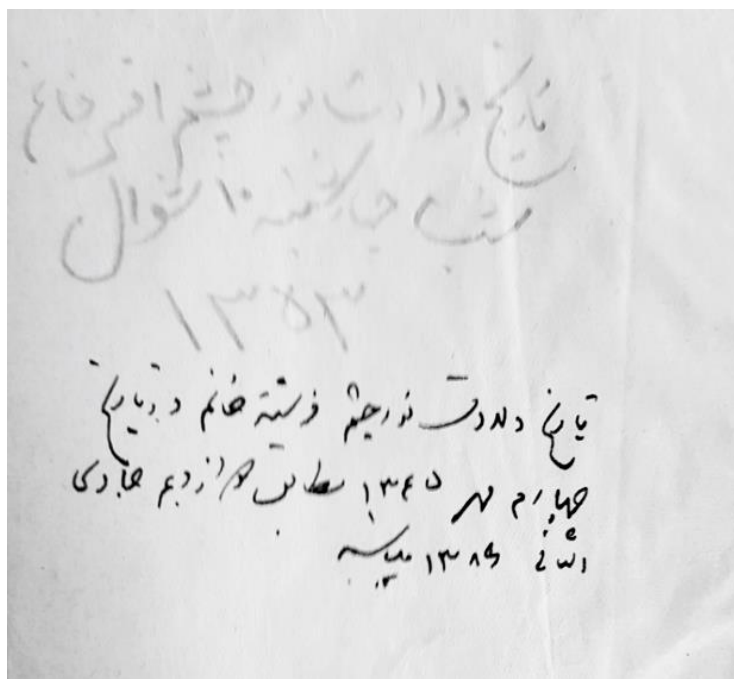 تاریخ ولادت نور چشم افسر خانم
شب چهارشنبه ۱۰ شوال
۱۳۵۳
تاریخ ولادت نورچشم فرشته خانم در تاریخ
چهارم مهر ۱۳۴۵ مطابق دوازدهم جمادی
الثانی ۱۳۸۶ میباشد